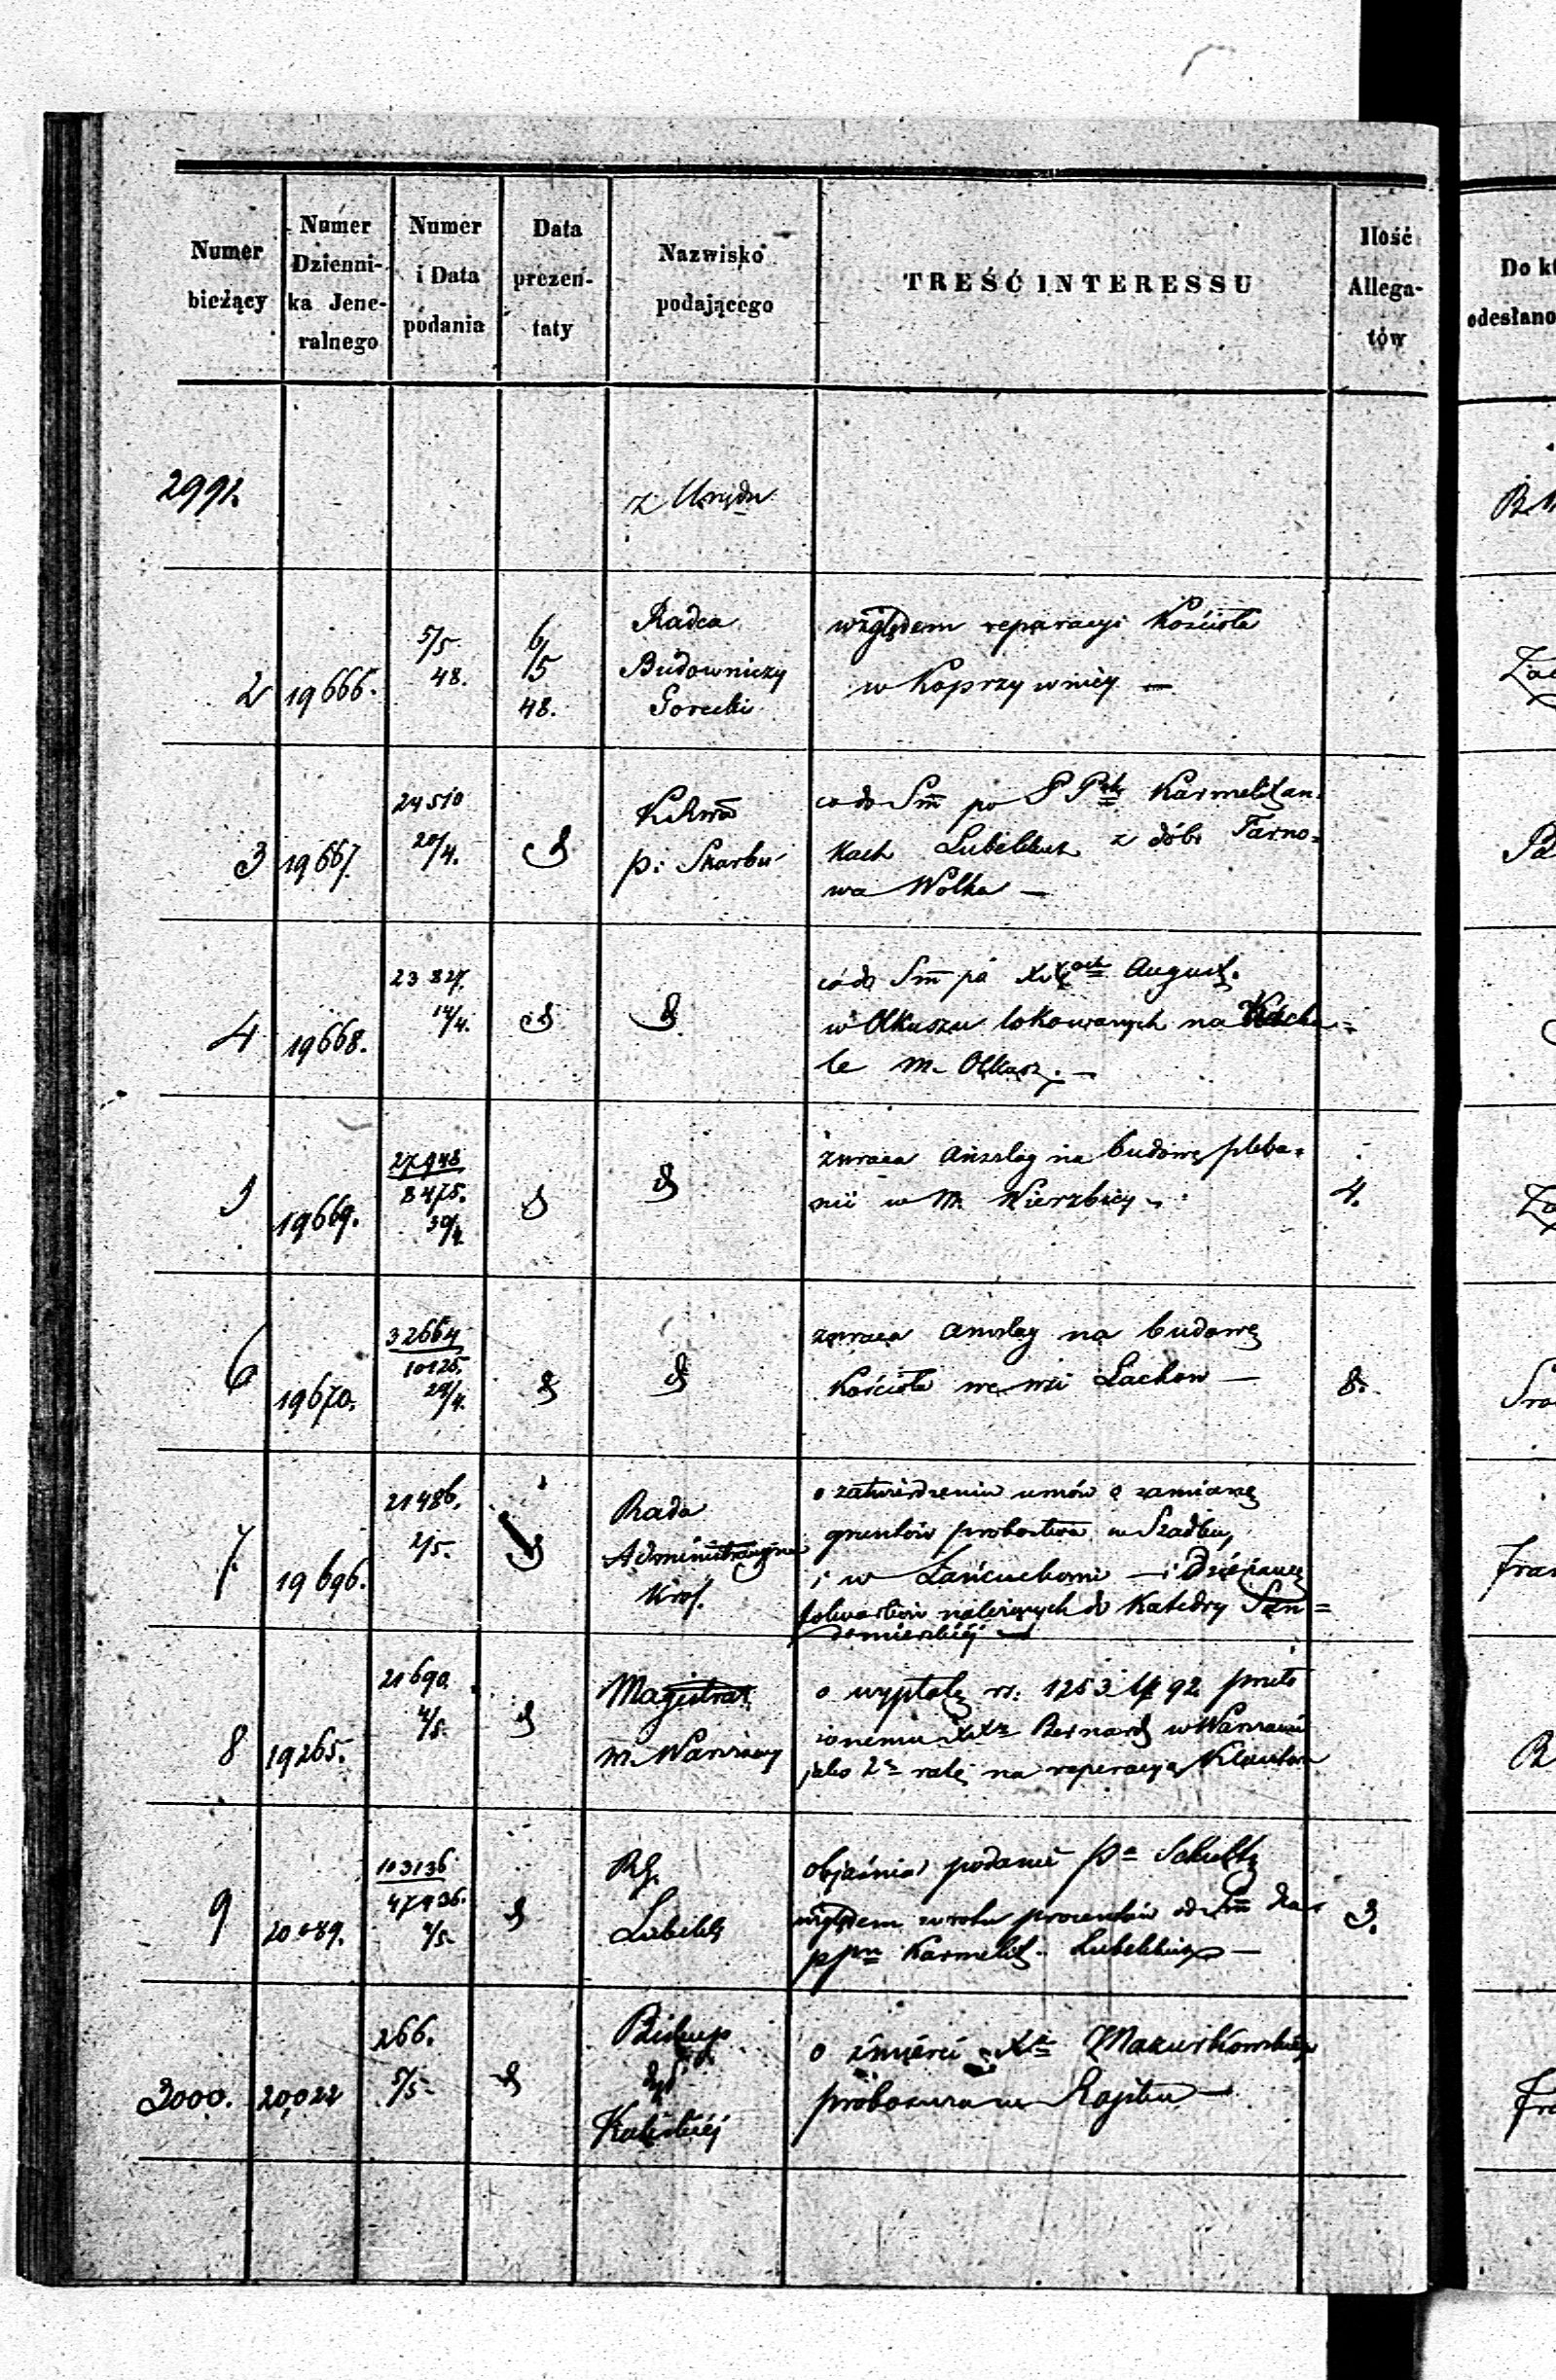 Numer bieżący
Numer Dzienni-ka Jene-ralnego
Numer i Data podania
Data prezen-taty
Nazwisko podającego
TREŚĆ INTERESSU
Ilość Allega-tów
Do kt
odesłano
2991.
z Urzędu
2
19666.
5/5
48.
6/5
48.
Radca
Budowniczy
Gorecki
względem reparacyi Kościoła
w Koprzywnicy —
Za
3
19667.
24510
20/4.
d
p: Skarbu
co do Sm̄ po PP Karmelitan-
kach Lubelskich z dóbr Tarno=
wa Wolka —
4
19668.
23827.
14/4.
d
d
co do Sm̄ po August.
w Olkuszu lokowanych na
le m. Olkusz. —
5
19669.
27948
8475.
30/4.
d
d
zwraca anszlag na budowę pleba=
nii w m. Wierzbicy.
4.
6
19670.
32664
10125.
29/4.
d
d
zwraca anszlag na budowę
Kościoła we wsi Lachow —
8.
7.
19696.
21486.
2/5.
d
Rada
Administracyjna
Król.
o zatwierdzeniu umów o zamianę
gruntów probostwa w Szadku,
i w Łańcuchowie — i Dzierżawę
folwarków należących do Katedry San=
domierskiéj —
Fran
8
19265.
21690.
4/5.
d
Magistrat
m. Warszawy
o wypłatę rs: 1253 k 92
Bernard w Warszawie
jako 2ą ratę na reperacyą Klasztoru
9
20089.
103136
47936.
4/5.
d
RG.
Lubelski
objaśnia podanie
względem zwrotu procentów od Sm̄
Karmelit. Lubelskich —
3.
3000.
20,022
266.
5/5.
d
Biskup
Kaliskiéj
o śmierci Xa Mazurkowskiego
proboszcza w Rajsku —